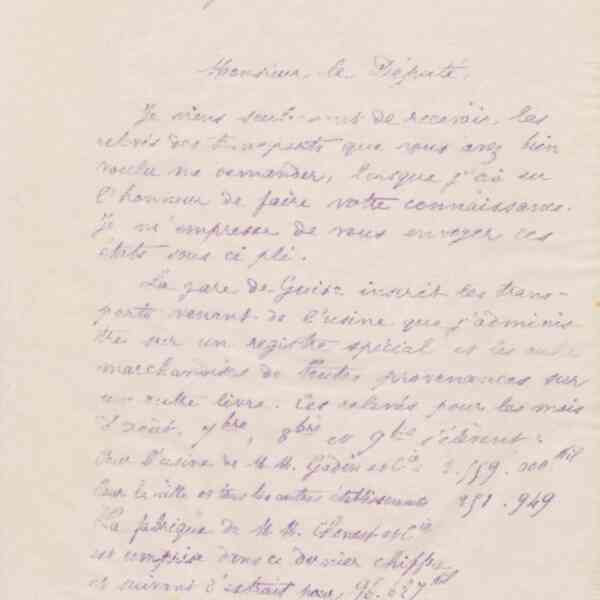 Monsieur le Député,
Je viens seulement de recevoir les
relevés des transports que vous avez bien
voulu me demander, lorsque j'ai eu
l'honneur de faire votre connaissance.
Je m'empresse de vous envoyer ces
états sous ce pli.
La gare de Guise inscrit les trans-
ports venant de l'usine que j'adminis-
tre sur un registre spécial et les autres
marchandises de toutes provenances sur
un autre livre. Ces relevés pour les mois
d'août, 7bre, 8bre et 9bre s'élèvent :
Pour l'usine de M.M. Godin et Cie
Pour la ville et tous les autres établissements 751.949
La fabrique de M.M. et Cie
est comprise dans ce dernier chiffre
et suivant l'extrait pour 96.627 kil